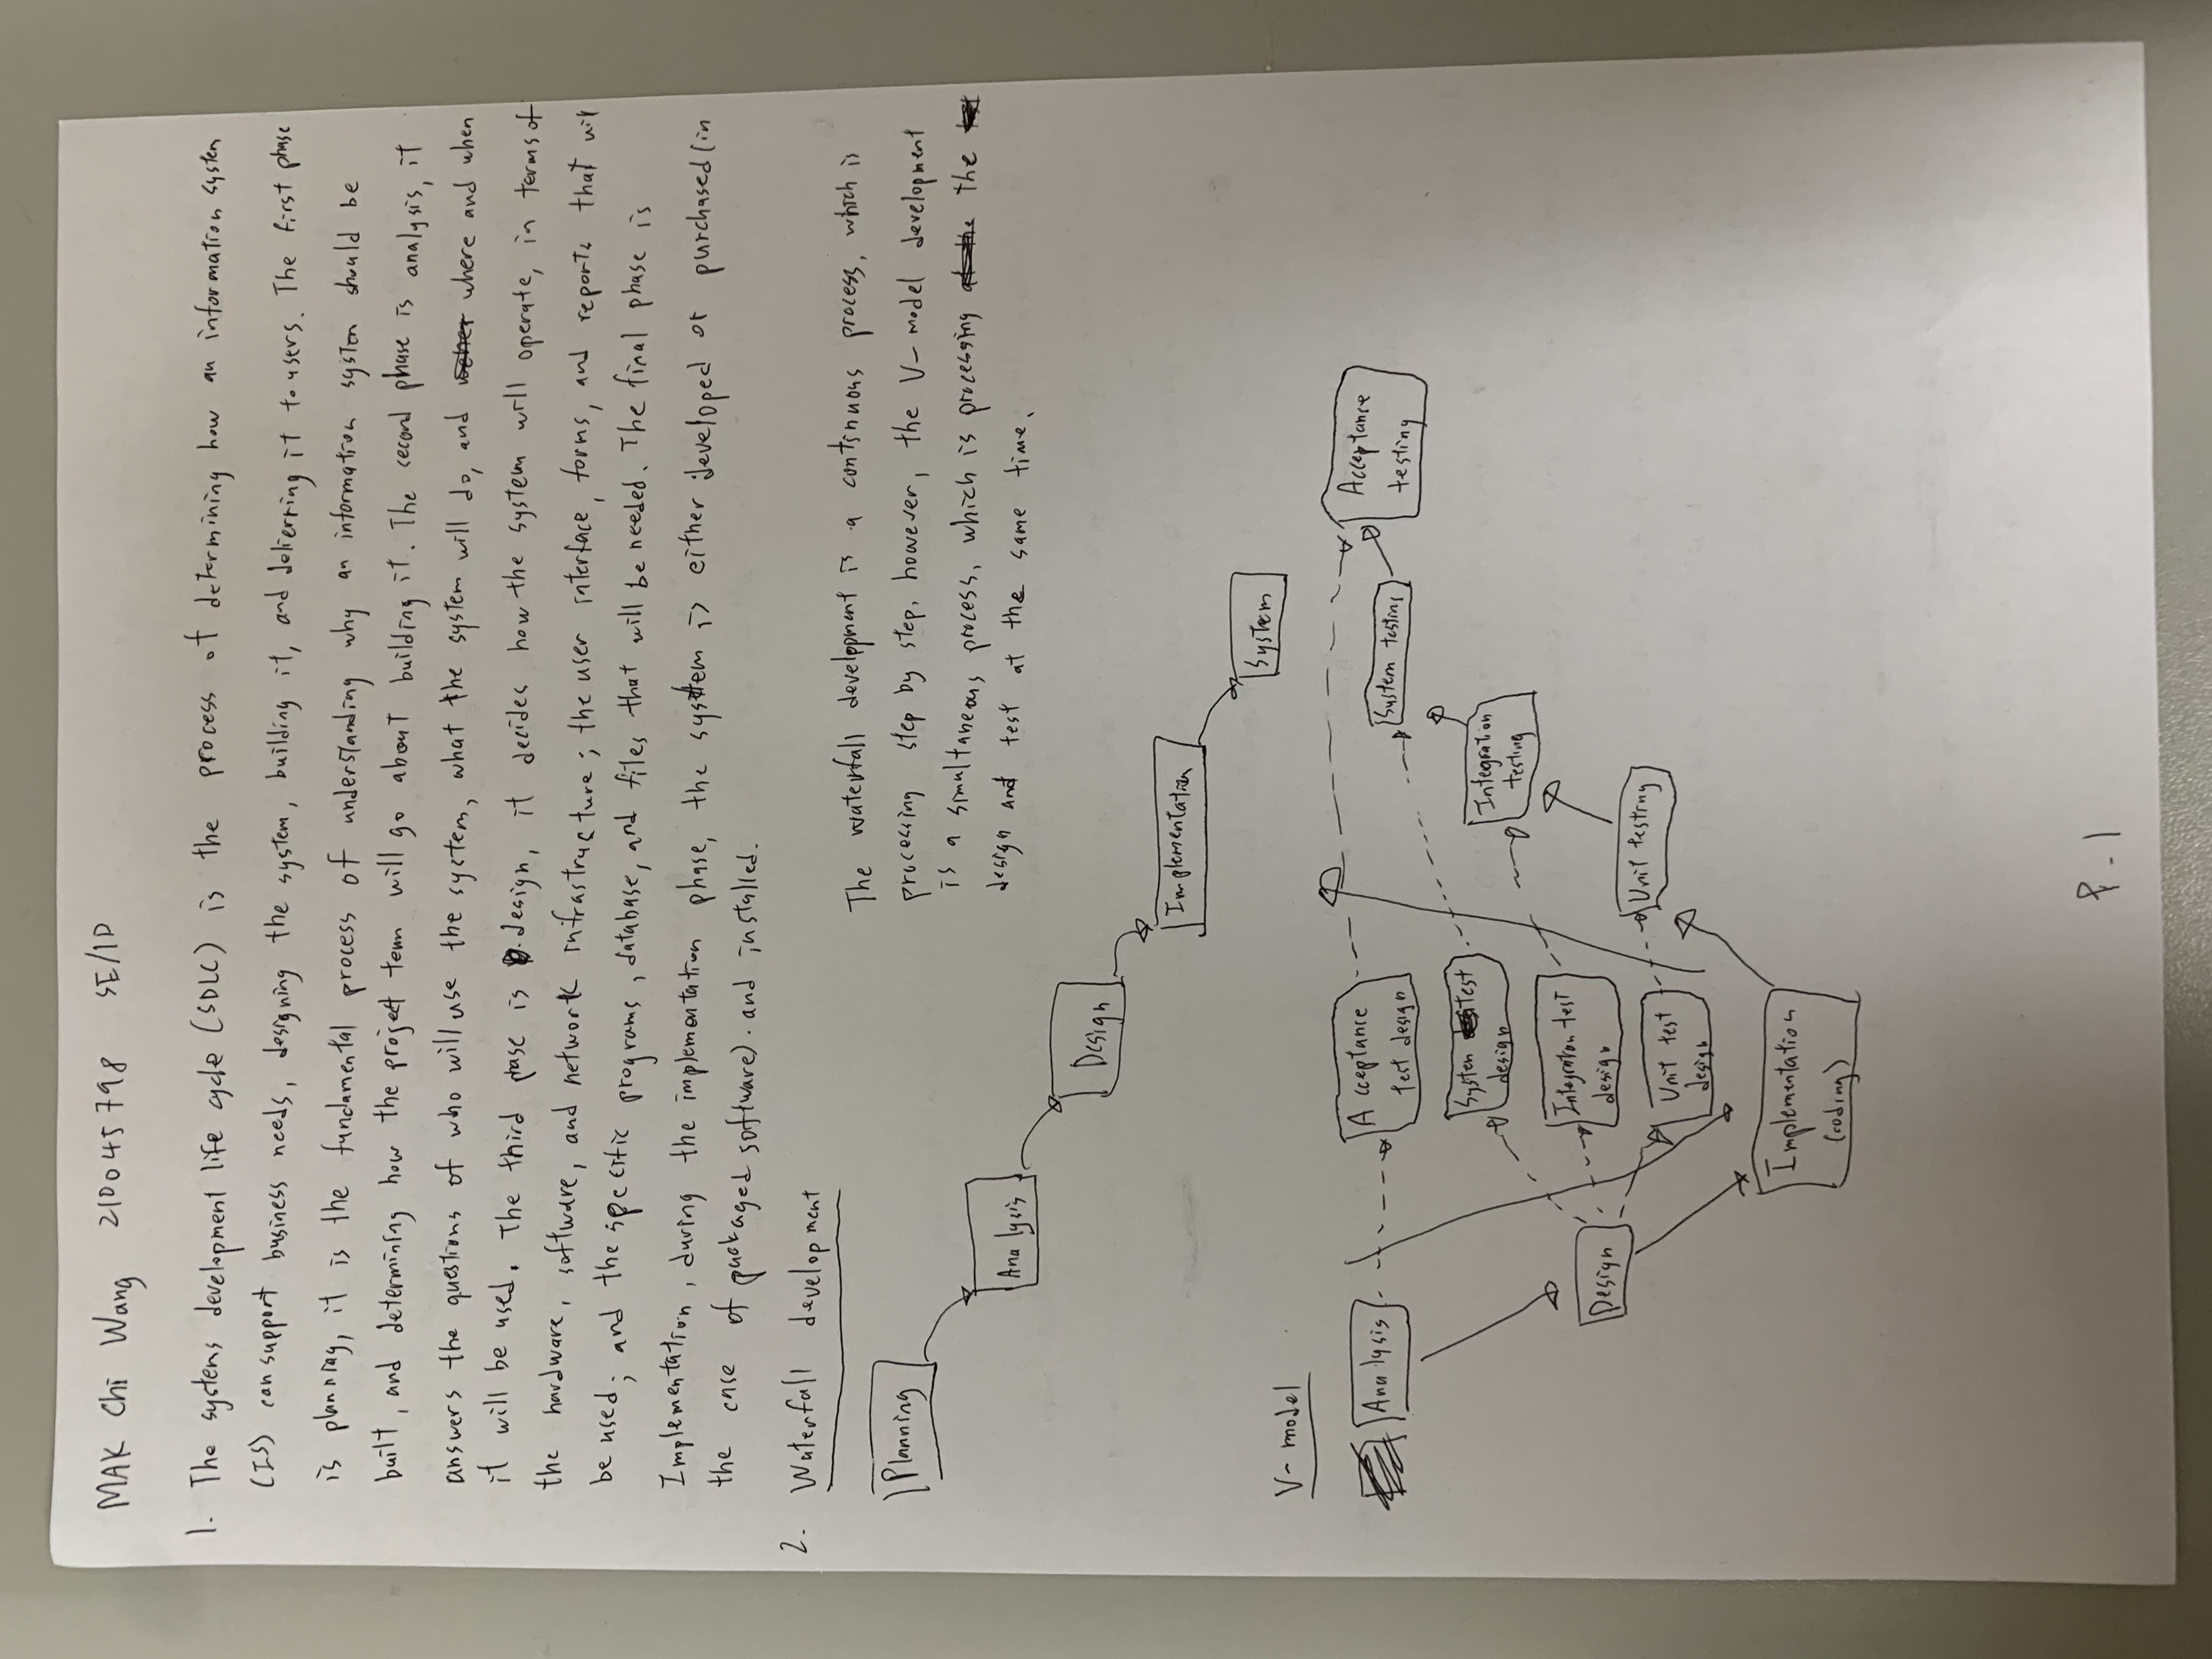 MAK Chi Wang 210045798 SE/1D
1. The systems development life cycle (SDLC) is the process of determining how an information system
(IS) can support business needs, designing the system, building it, and delierring it to users. The first phase
is planning, it is the fundamental process of understanding why an information system should be
built, and determining how the project team will go about building it. The second phase is analysis, it
answers the questions of who will use the system, what the system will do, and where and when
it will be used. The third phase is design, it decides how the system will operate, in terms of
the hardware, software, and network infrastructure; the user interface, forms, and reports that will
be used; and the specific programs, database, and files that will be needed. The final phase is
Implementation, during the implementation phase, the system is either developed or purchased (in
the case of packaged software). and installed.
2. Waterfall development
The waterfall development is a continuous process, which is
processing step by step, however, the V-model development
is a simultaneous process, which is processing the
design and test at the same time.
Planning
Analysis
Design
Implementation
System
V-model
Analysis
Acceptance
test design
Acceptance
testing
System testing
System test
design
Integration
testing
Integration test
design
Design
Unit testing
Unit test
design
Implementation
(coding)
P-1